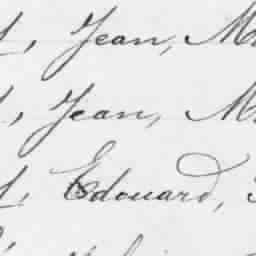 , Jean, M
, Jean, M
, Edouard,